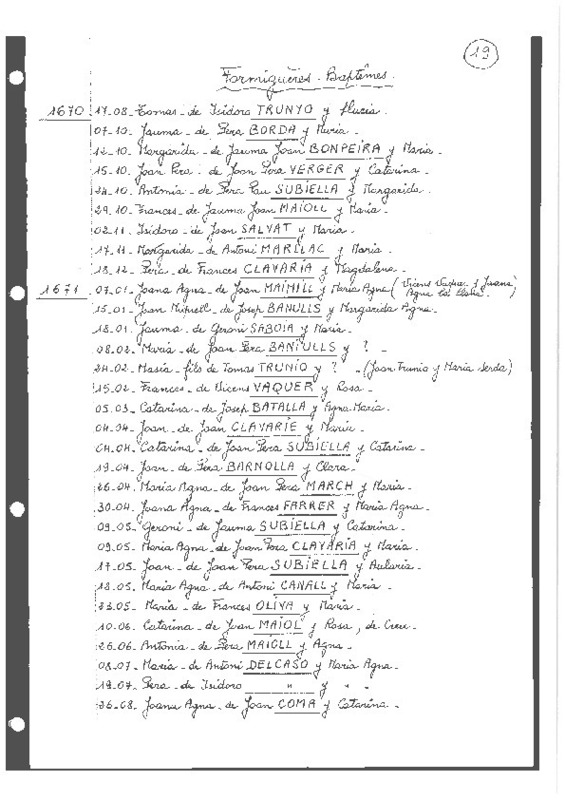 19
Formiguères - Baptêmes.
1670 17-08- Tomas - de Isidoro TRUNYO y Llucia.
07-10- Jauma - de Pera BORDA y Maria -
12-10- Margarida - de Jauma Joan BONPEIRA y Maria -
15-10- Joan Pera - de Joan Pera VERGER y Catarina -
28-10- Antonia - de Pere Pau SUBIELLA y Margarida.
29-10- Frances - de Jauma Joan MAIOLL y Maria -
02-11- Isidoro - de Joan SALVAT y Maria -
17-11- Margarida - de Antoni MARILAC y Maria -
18-12- Pera - de Frances CLAVARIA y Magdalena -
1671 07-01- Joana Agna - de Joan y Maria Agna (Vicens Vaquer y Juana
Agna )
15-01- Joan Miquell - de Josep BANULLS y Margarida Agna -
18-01- Jauma - de Geroni SABOIA y Maria -
08-02- Maria - de Joan Pera BANIULLS y ? -
24-02- Masia - fils de Tomas TRUNIO y ? - (Joan Trunio y Maria Serda)
15-02- Frances - de Vicens VAQUER y Rosa -
05-03- Catarina - de Josep BATALLA y Agna Maria -
04-04- Joan - de Joan CLAVARIE y Maria -
04-04- Catarina - de Joan Pera SUBIELLA y Catarina -
19-04- Joan - de Pera BARNOLLA y Clara -
26-04- Maria Agna - de Joan Pera MARCH y Maria -
30-04- Joana Agna - de Frances FARRER y Maria Agna -
09-05- Geroni - de Jauma SUBIELLA y Catarina -
09-05- Maria Agna - de Joan Pera CLAVARIA y Maria -
17-05- Joan - de Joan Pera SUBIELLA y Aularia -
18-05- Maria Agna - de Antoni CANALL y Maria -
23-05- Maria - de Frances OLIVA y Maria -
10-06- Catarina - de Joan MAIOL y Rosa, de Creu -
26-06- Antonia - de Pera MAIOLL y Agna -
08-07- Maria - de Antoni DELCASO y Maria Agna -
19-07- Pera - de Isidoro " y " -
26-08- Joana Agna - de Joan COMA y Catarina -